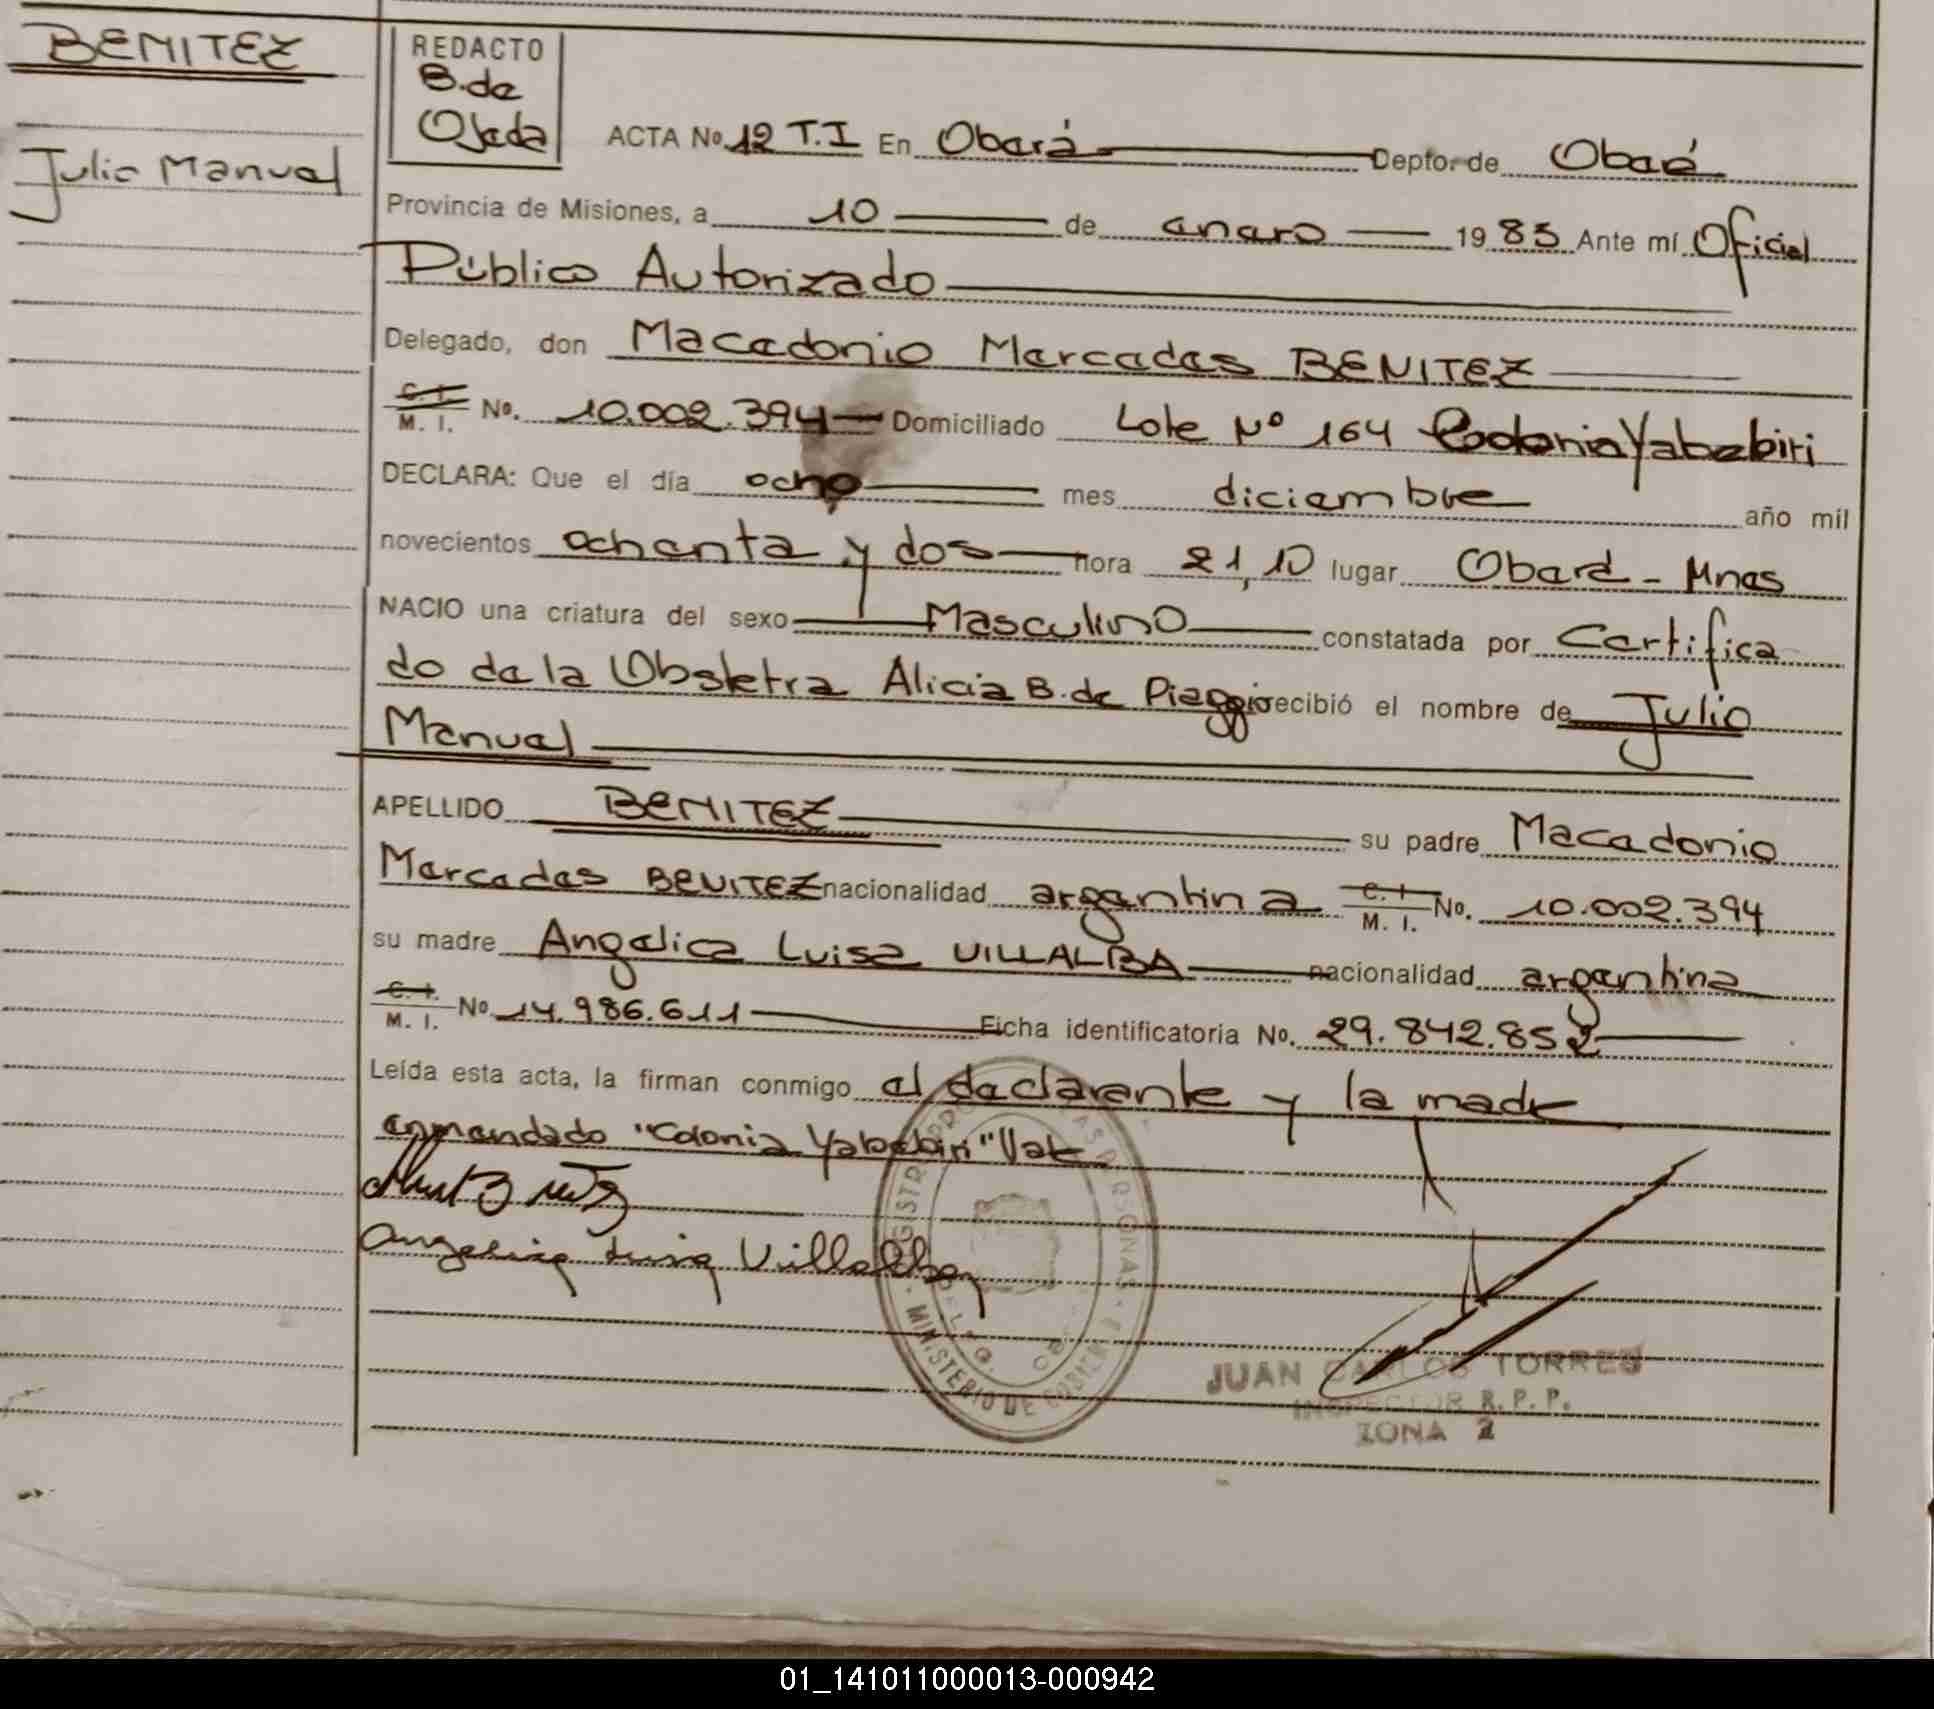 BENITEZ
Julio Manuel
REDACTO
B. de
Ojeda
ACTA No. 12 T.I En Oberá Depto. de Oberá
Provincia de Misiones, a 10 de enero 1983 Ante mí Oficial
Público Autorizado
Delegado, don Macedonio Mercedes BENITEZ
C. I. M. I. No. 10.002.394 Domiciliado Lote Nº 164 Colonia Yabebiri
DECLARA: Que el día ocho mes diciembre año mil
novecientos ochenta y dos hora 21,10 lugar Oberá - Mnes
NACIO una criatura del sexo Masculino constatada por Certifica
do de la Obstetra Alicia B. de Piaggio recibió el nombre de Julio
Manuel
APELLIDO BENITEZ su padre Macedonio
Mercedes BENITEZ nacionalidad argentina C. I. M. I. No. 10.002.394
su madre Angelica Luisa VILLALBA nacionalidad argentina
C. I. M. I. No 14.986.611 Ficha identificatoria No. 29.842.852
Leída esta acta, la firman conmigo el declarante y la madre
enmendado "Colonia Yabebiri" Vale
Angelica Luisa Villalba
MINISTERIO DE GOBIERNO
JUAN CARLOS TORRES
INSPECTOR R. P. P.
ZONA 2
01_141011000013-000942